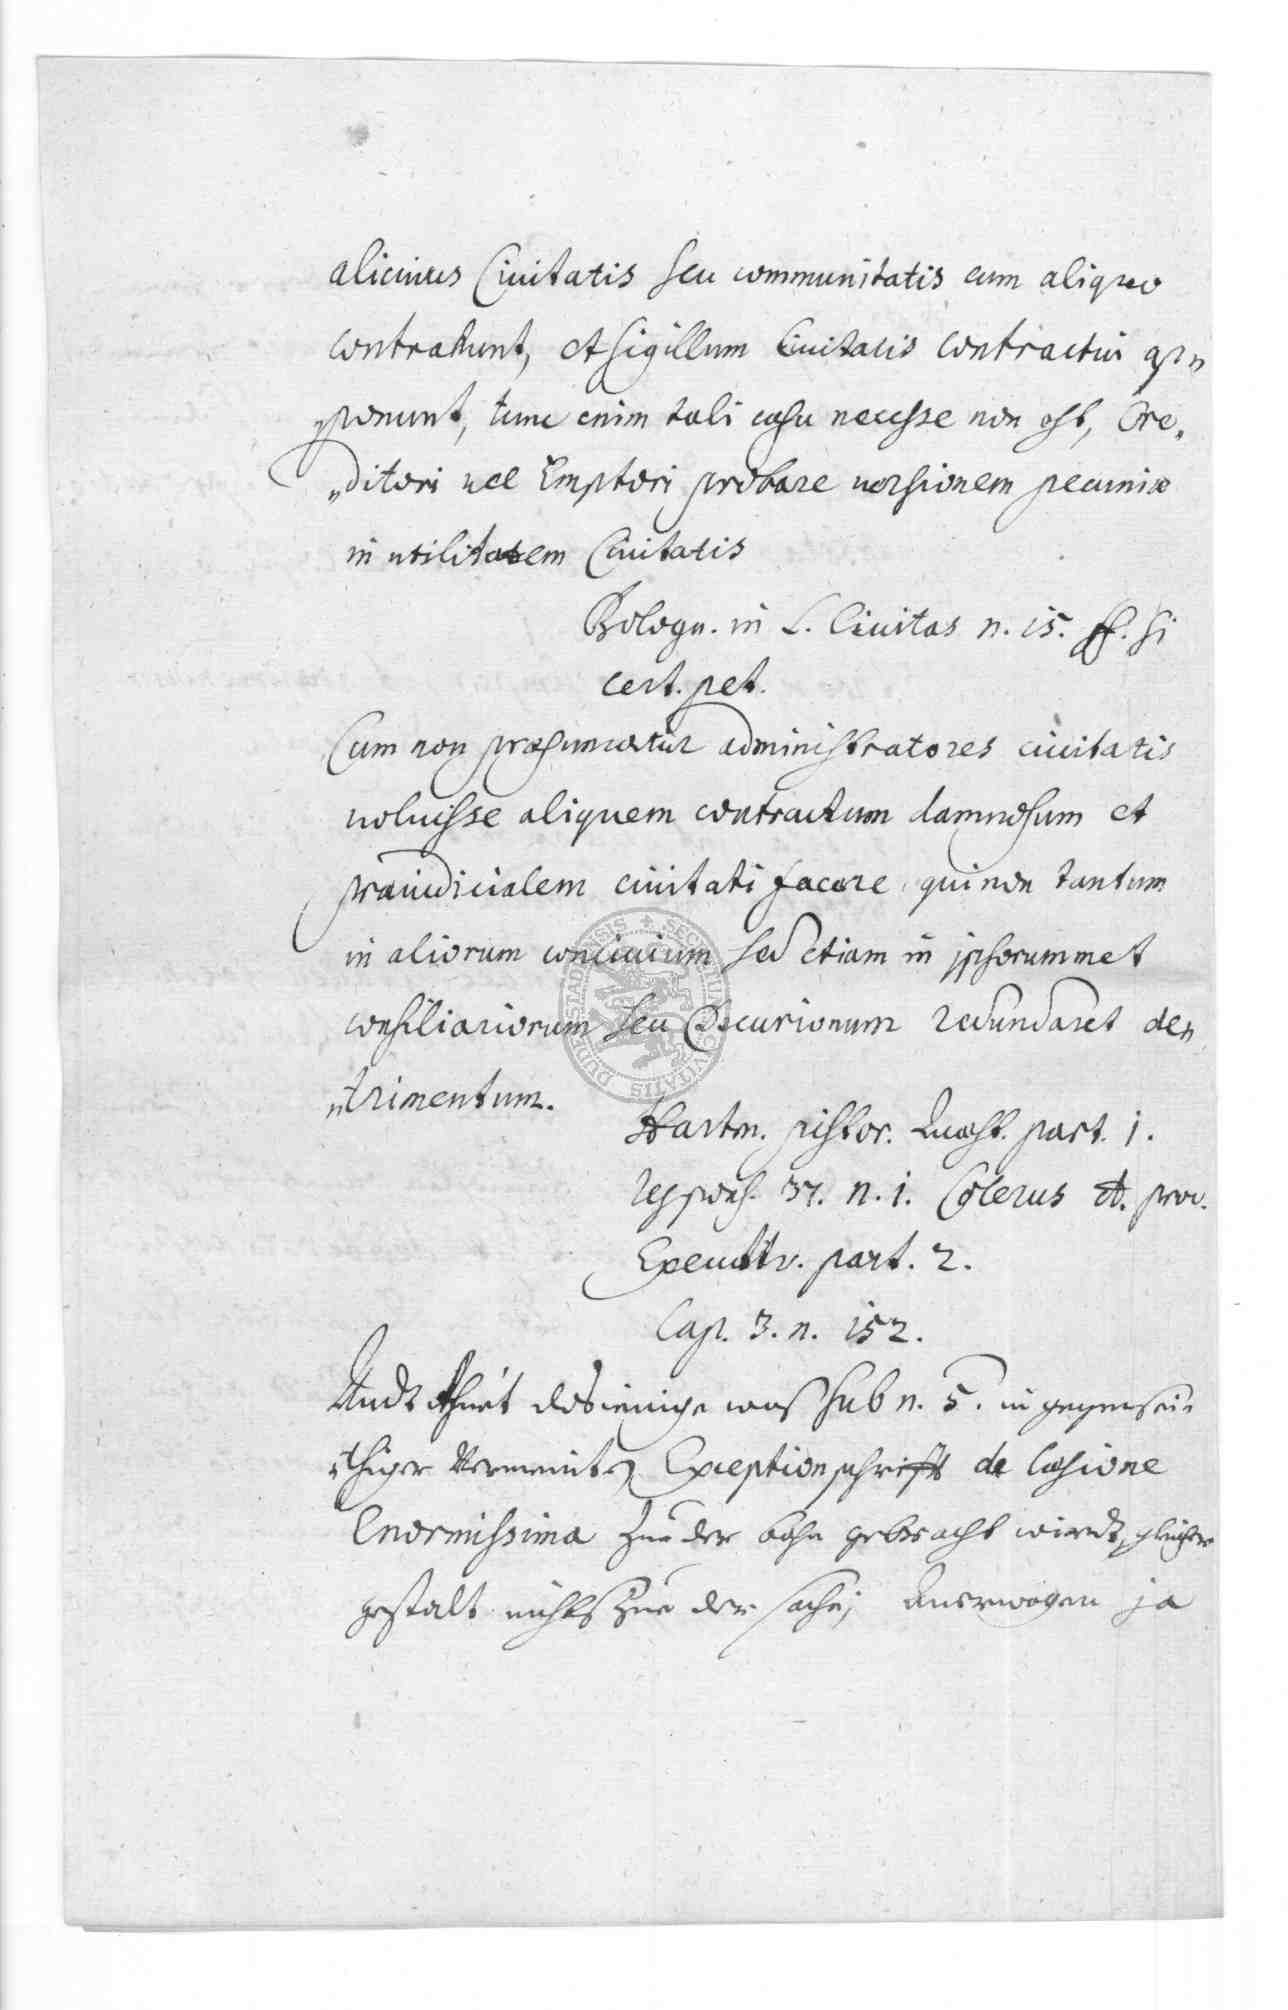 alicuius Ciuitatis seu communitatis cum aliquo
contrahunt, et sigillum Ciuitatis contractui ap„
ponunt, tunc enim tali casu necesse non est, Cre„
„ditori vel Emptori probare uersionem pecuniæ
in utilitatem Ciuitatis
Bologn. in L. Ciuitas n. 15. ff. si
cert. pet.
Cum non præsumatur administratores ciuitatis
uoluisse aliquem contractum damnosum et
præiudicialem ciuitati facere, qui non tantum
in aliorum conciuium sed etiam in ipsorummet
consiliariorum seu Decurionum redundaret de„
„trimentum.
Hartm. pistor. Quæst. part. 1.
37. n. 1. Colerus d. proc.
Executiv. part. 2.
Cap. 3. n. 152.
Undt thuet dasienige was sub n. 5. in gegensei„
thiger Vermeinter Exceptionschrifft de læsione
Enormissima zue der bahn gebracht wirdt, gleicher
gestalt nichts zue der sache, Anerwogen ja
SECRETUM CIVITATIS DUDERSTADENSIS